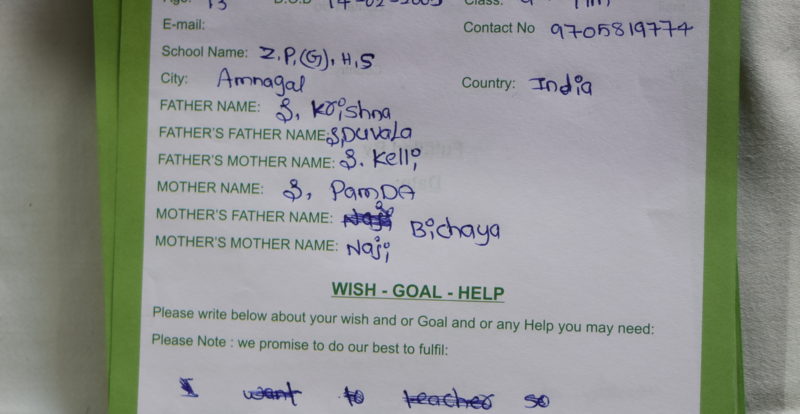 Age: 13 D.O.B 14-02-2005 Class: 9th
E-mail: Contact No 9705819774
School Name: Z.P.(G).H.S
City: Amnagal Country: India
FATHER NAME: S. Krishna
FATHER'S FATHER NAME: S. Duvala
FATHER'S MOTHER NAME: S. Kelli
MOTHER NAME: S. PamDA
MOTHER'S FATHER NAME: Bichaya
MOTHER'S MOTHER NAME: Naji
WISH - GOAL - HELP
Please write below about your wish and or Goal and or any Help you may need:
Please Note : we promise to do our best to fulfil:
I want to teacher so